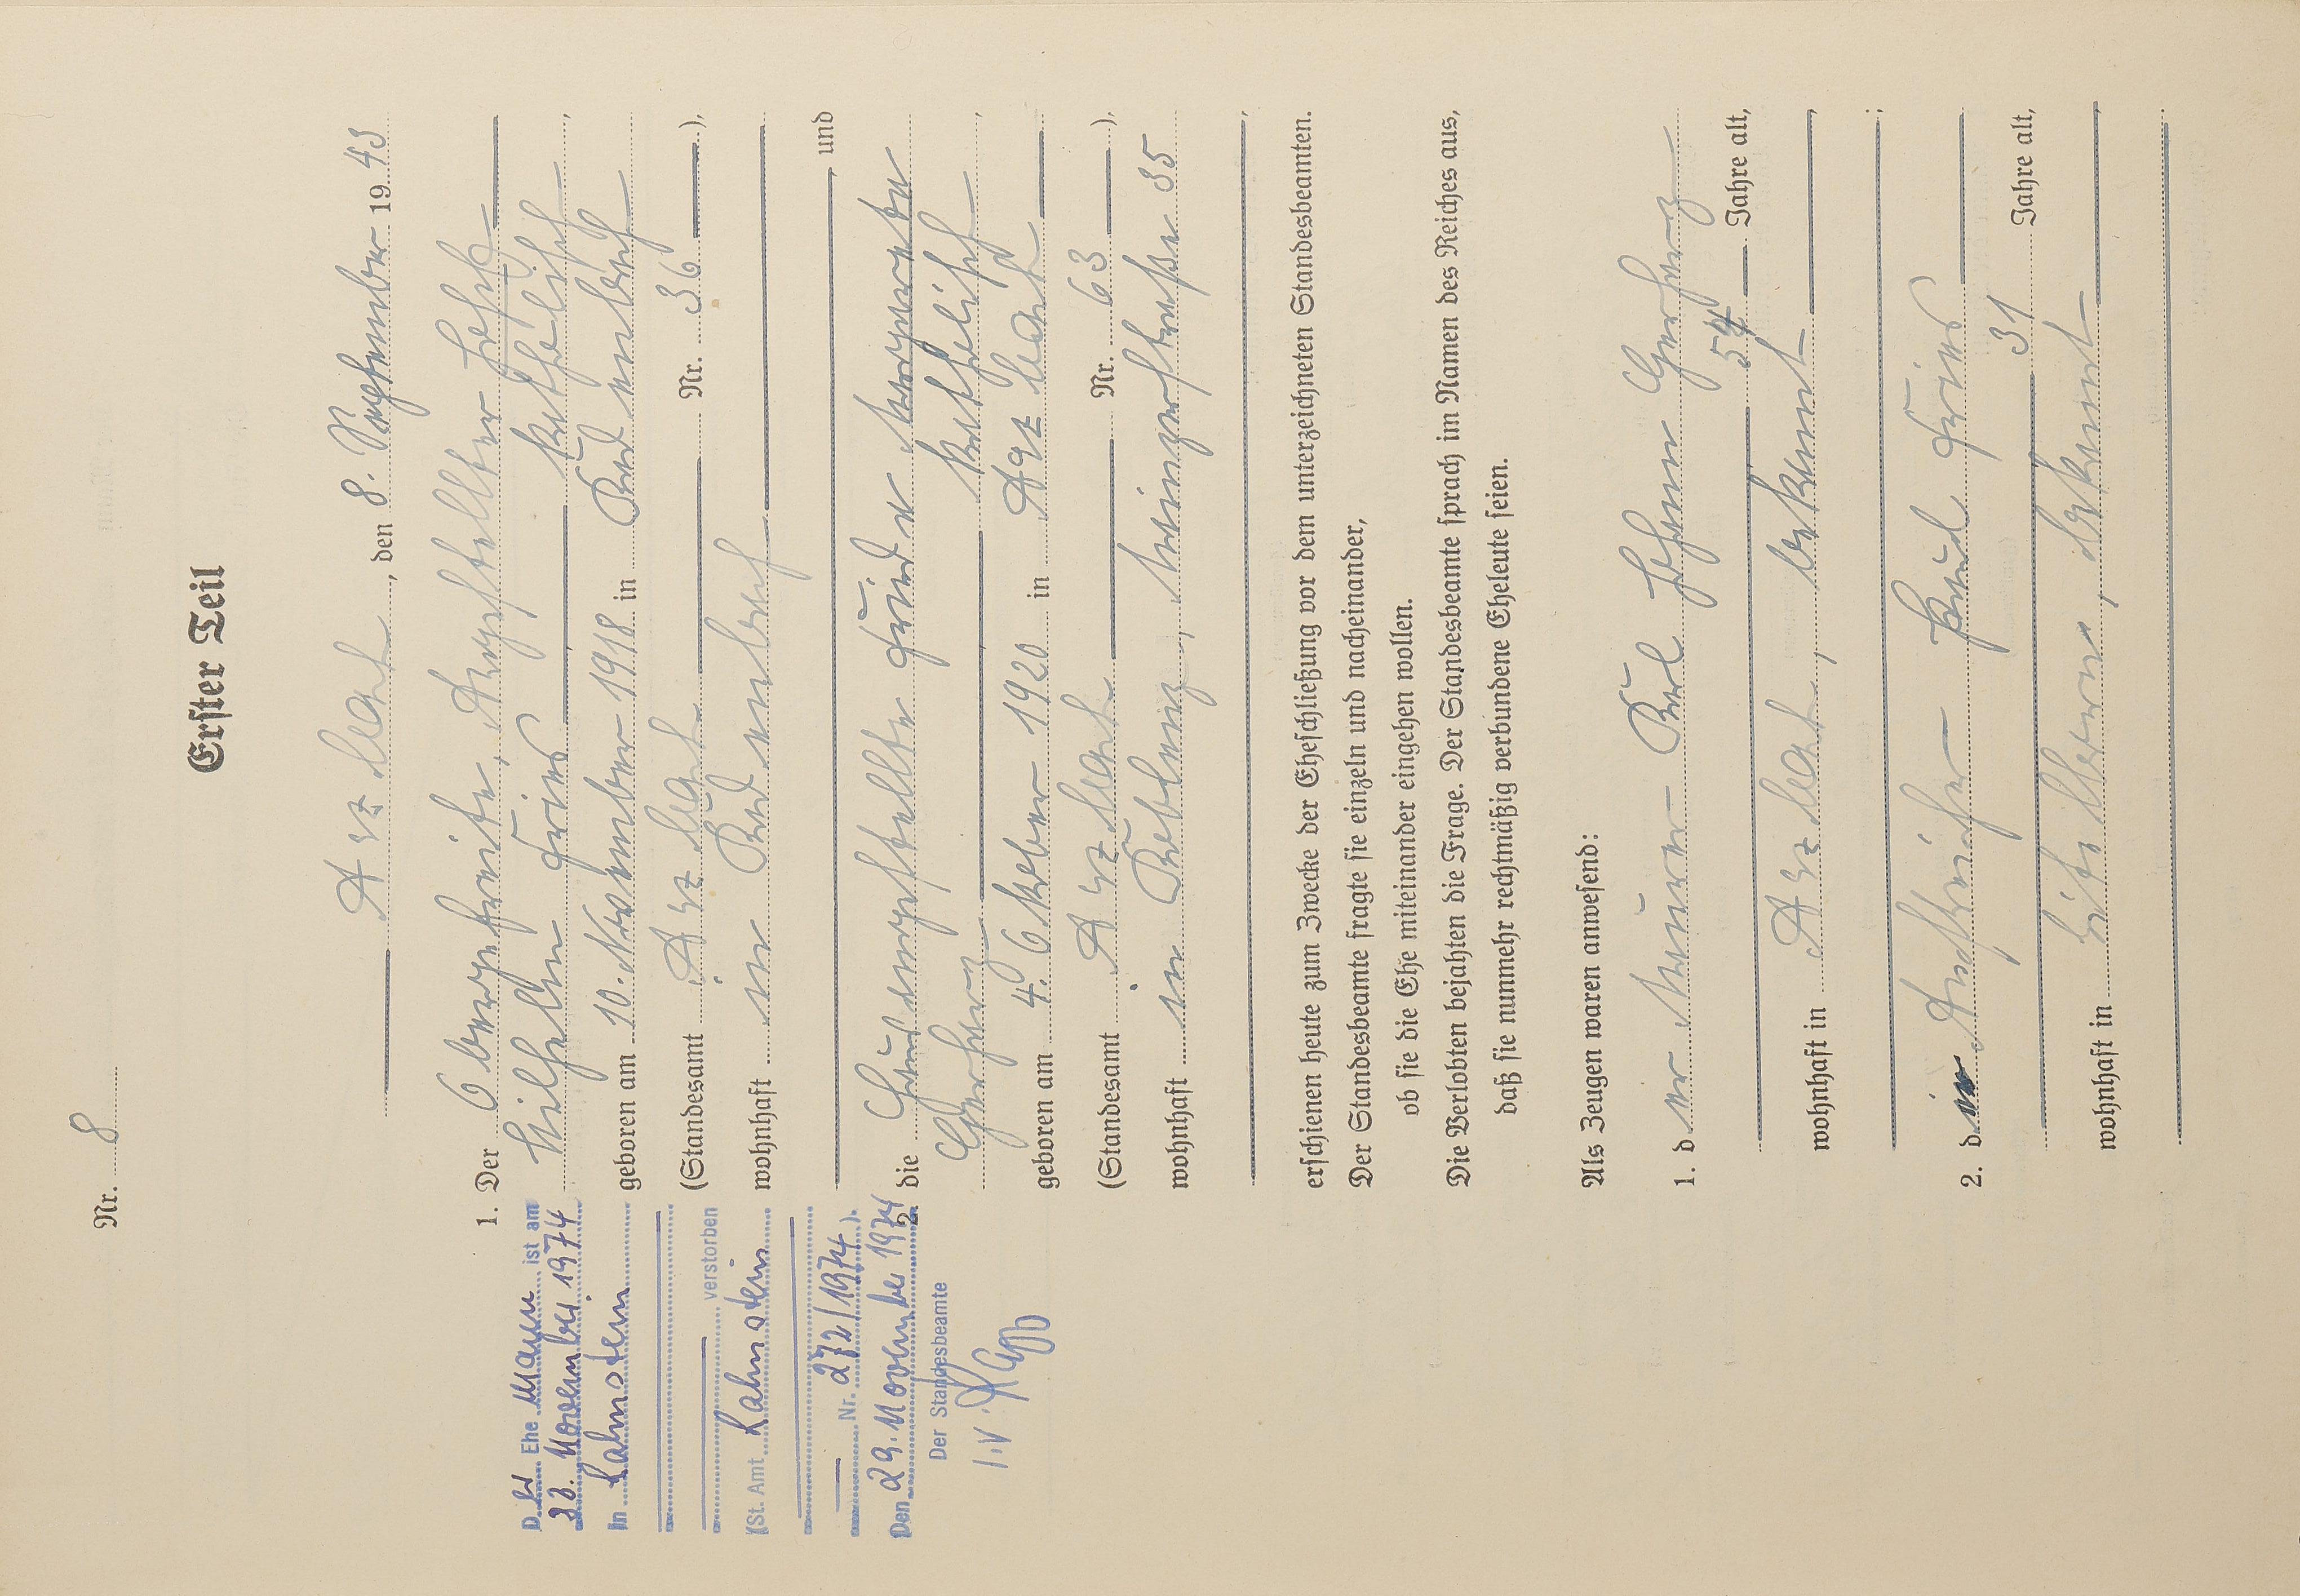 Nr. 8
Erster Teil
Arzbach, den 8. September 1943
1. Der Obergefreite, Angestellter Josef
Wilhelm Fries katholisch,
geboren am 10. November 1918 in Kadenbach
(Standesamt Arzbach Nr. 36),
wohnhaft in Kadenbach
, und
2. die Hausangestellte Frieda Margareta
Gerharz katholisch,
geboren am 4. Oktober 1920 in Arzbach
(Standesamt Arzbach Nr. 63),
wohnhaft in Koblenz, Mainzerstraße 35
,
erschienen heute zum Zwecke der Eheschließung vor dem unterzeichneten Standesbeamten.
Der Standesbeamte fragte sie einzeln und nacheinander,
ob sie die Ehe miteinander eingehen wollen.
Die Verlobten bejahten die Frage. Der Standesbeamte sprach im Namen des Reiches aus,
daß sie nunmehr rechtmäßig verbundene Eheleute seien.
Als Zeugen waren anwesend:
1. der Maurer Karl Johann Gerharz
54 Jahre alt,
wohnhaft in Arzbach, bekannt,
;
2. der Anstreicher Paul Fries
31 Jahre alt,
wohnhaft in Eitelborn, bekannt,
.
Der Ehe Mann ist am
23. November 1974
in Lahnstein
verstorben
(St. Amt Lahnstein
Nr. 272/1974).
Den 29. November 1974
Der Standesbeamte
i.V.